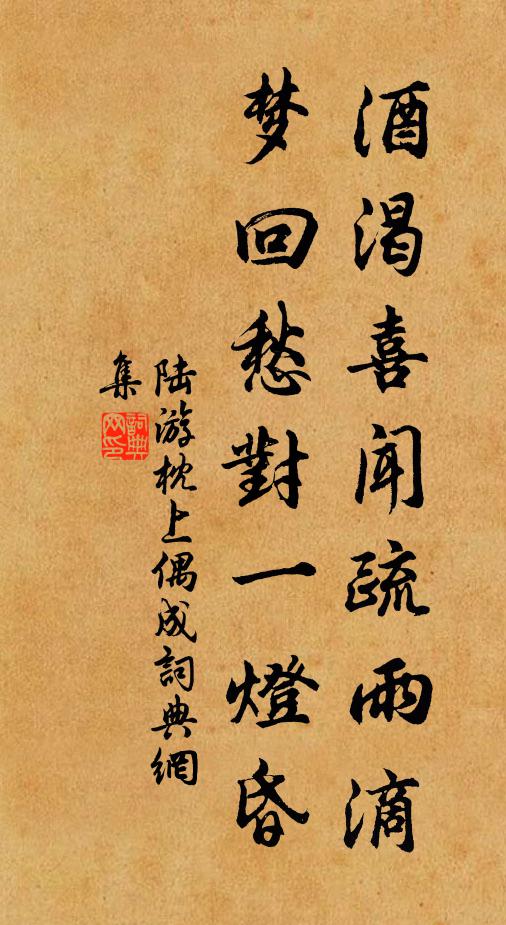 酒渴喜闻疏雨滴
梦回愁對一燈昏
陆游枕上偶成詞典網
集
詞典网印